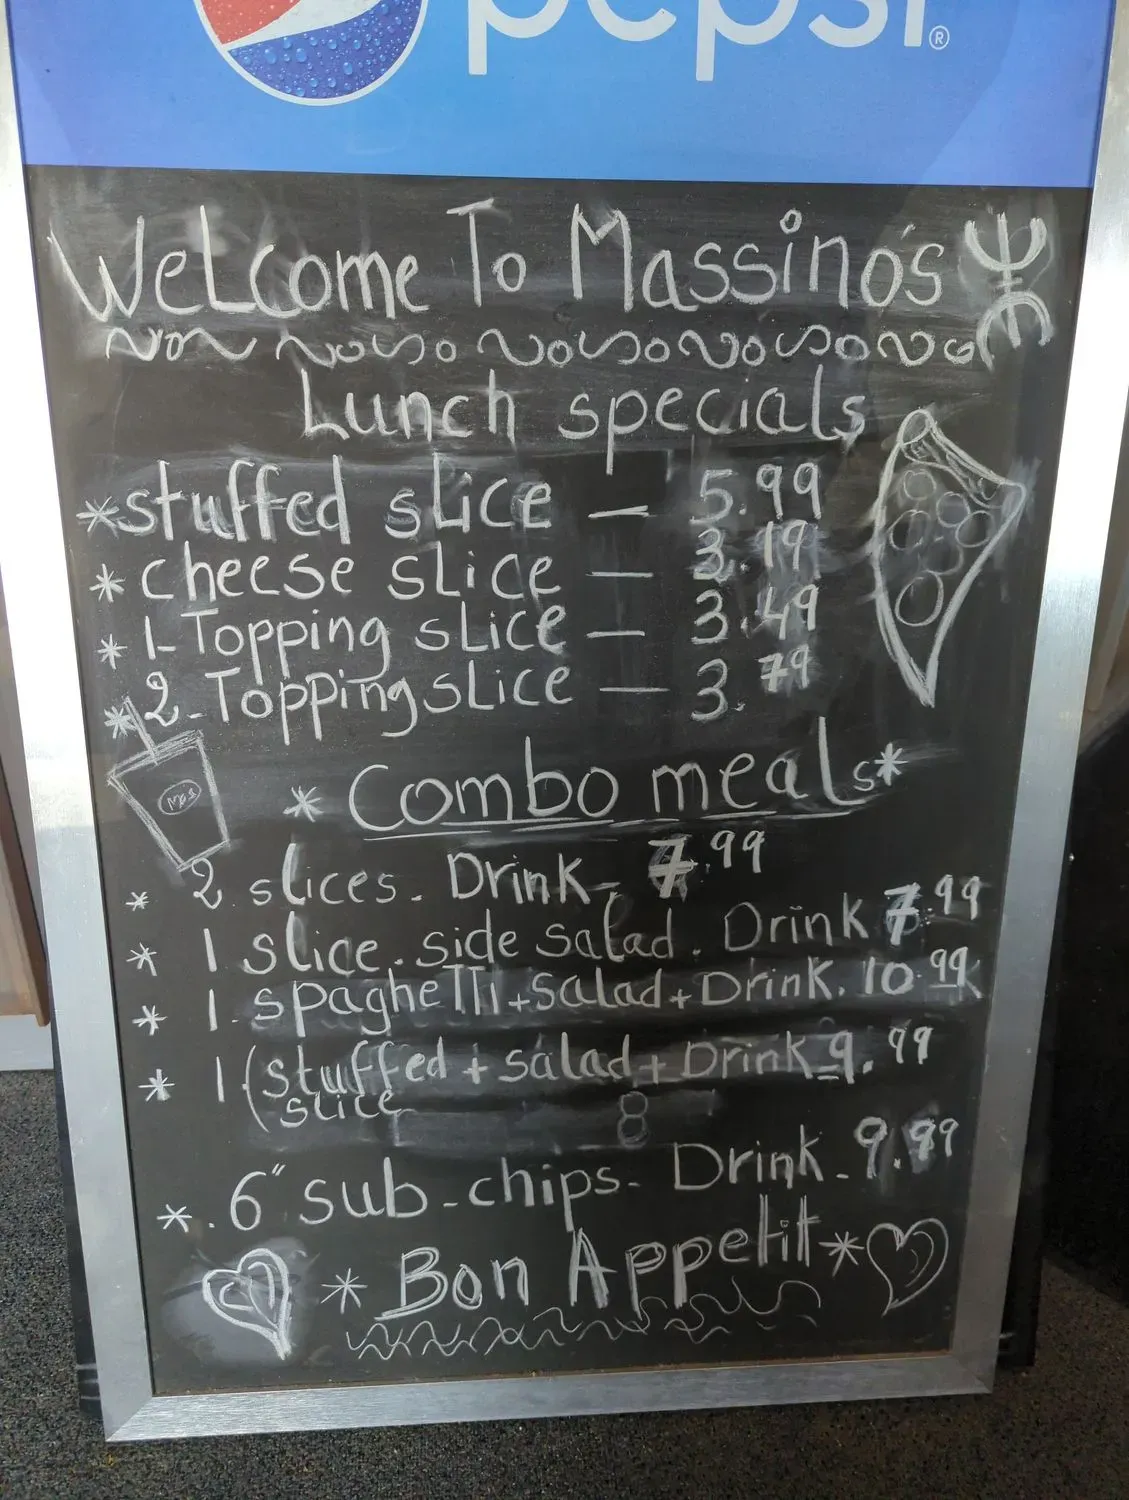 pepsi®
Welcome To Massino's
Lunch specials
*stuffed slice — 5.99
* cheese slice — 3.19
* 1-Topping slice — 3.49
* 2-Topping slice — 3.79
Mo's
* Combo meals*
* 2 slices. Drink- 7.99
* 1 slice. side salad. Drink 7.99
* 1. spaghetti+salad+Drink. 10.99
* 1 (stuffed + salad + Drink 9.99
slice
8
*. 6" sub-chips- Drink-9.99
* Bon Appetit*